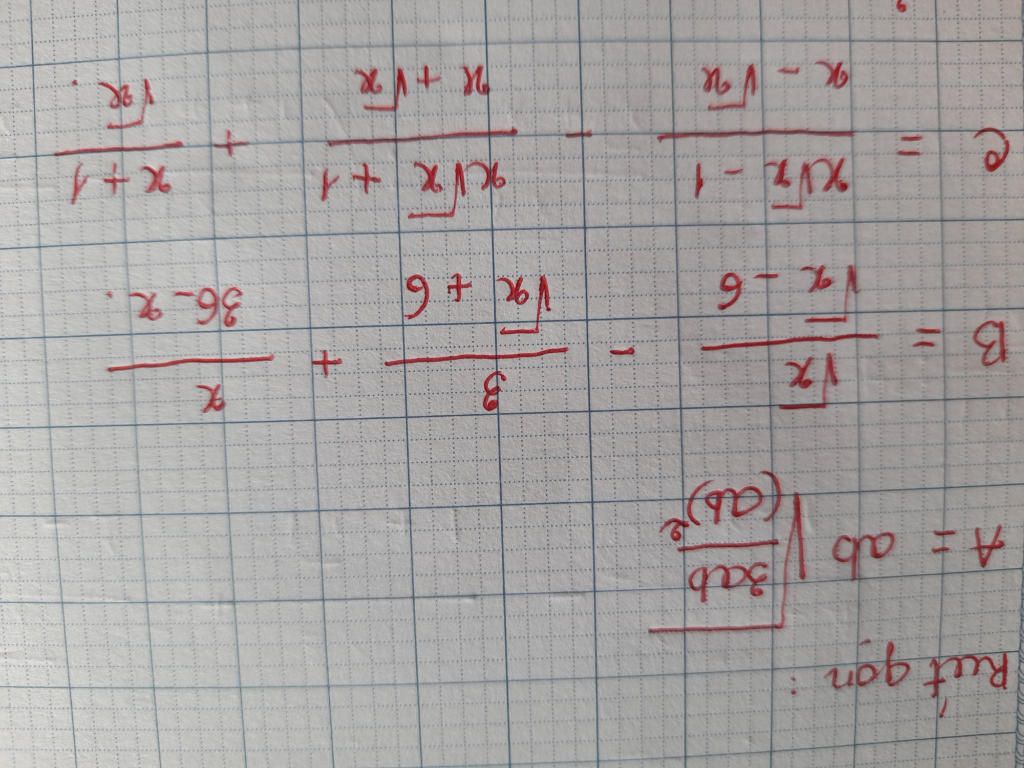 Rút gọn :
A = ab √(3ab/(ab)²)
B = √x/(√x - 6) - 3/(√x + 6) + x/(36 - x) .
C = (x√x - 1)/(x - √x) - (x√x + 1)/(x + √x) + (x + 1)/√x .